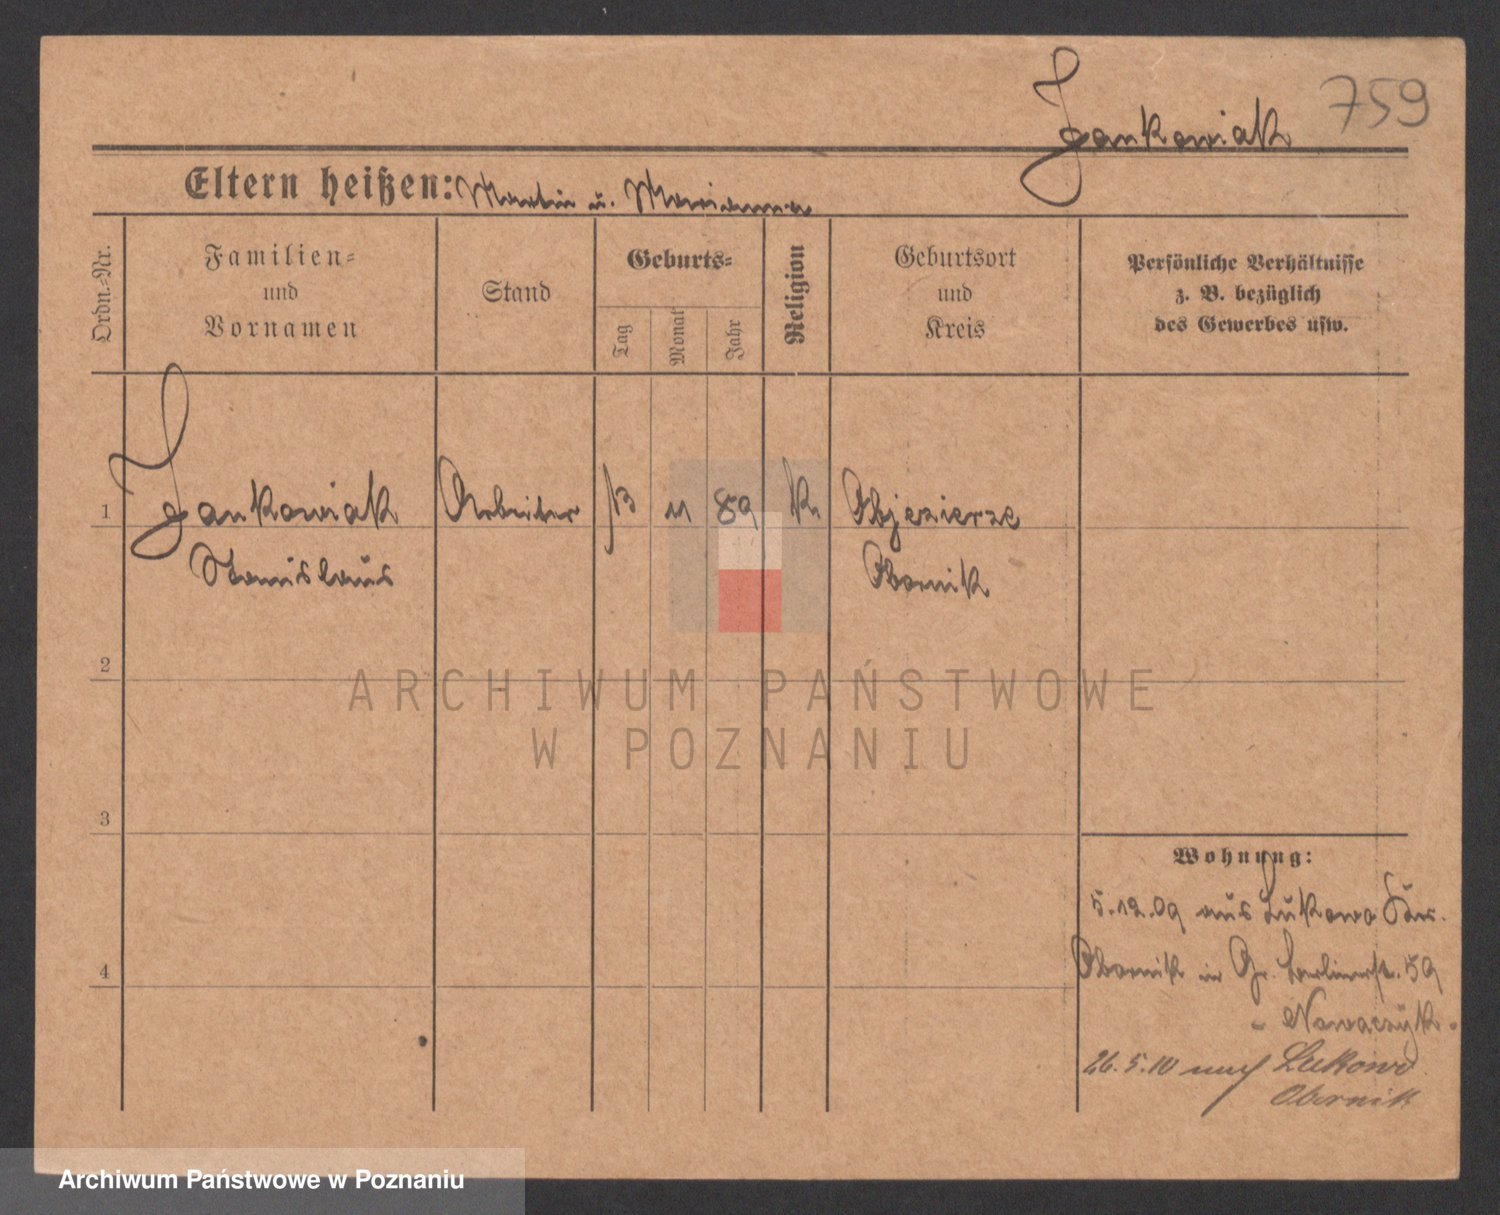 759
Jankowiak
Eltern heißen: Martin u. Marianna
Ordn.-Nr.
Familien-
und
Vornamen
Stand
Geburts-
Tag
Monat
Jahr
Religion
Geburtsort
und
Kreis
Persönliche Verhältnisse
z. B. bezüglich
des Gewerbes usw.
1 Jankowiak Arbeiter 13 11 89 k. Objezierze
Stanislaus Obornik
2
ARCHIWUM PAŃSTWOWE
W POZNANIU
3
Wohnung:
5.12.09 aus Lukowo Krs.
4
Obornik in Gr. Berlinerst. 59
- Nowaczyk -
26.5.10 nach Lukowo
Obornik
Archiwum Państwowe w Poznaniu